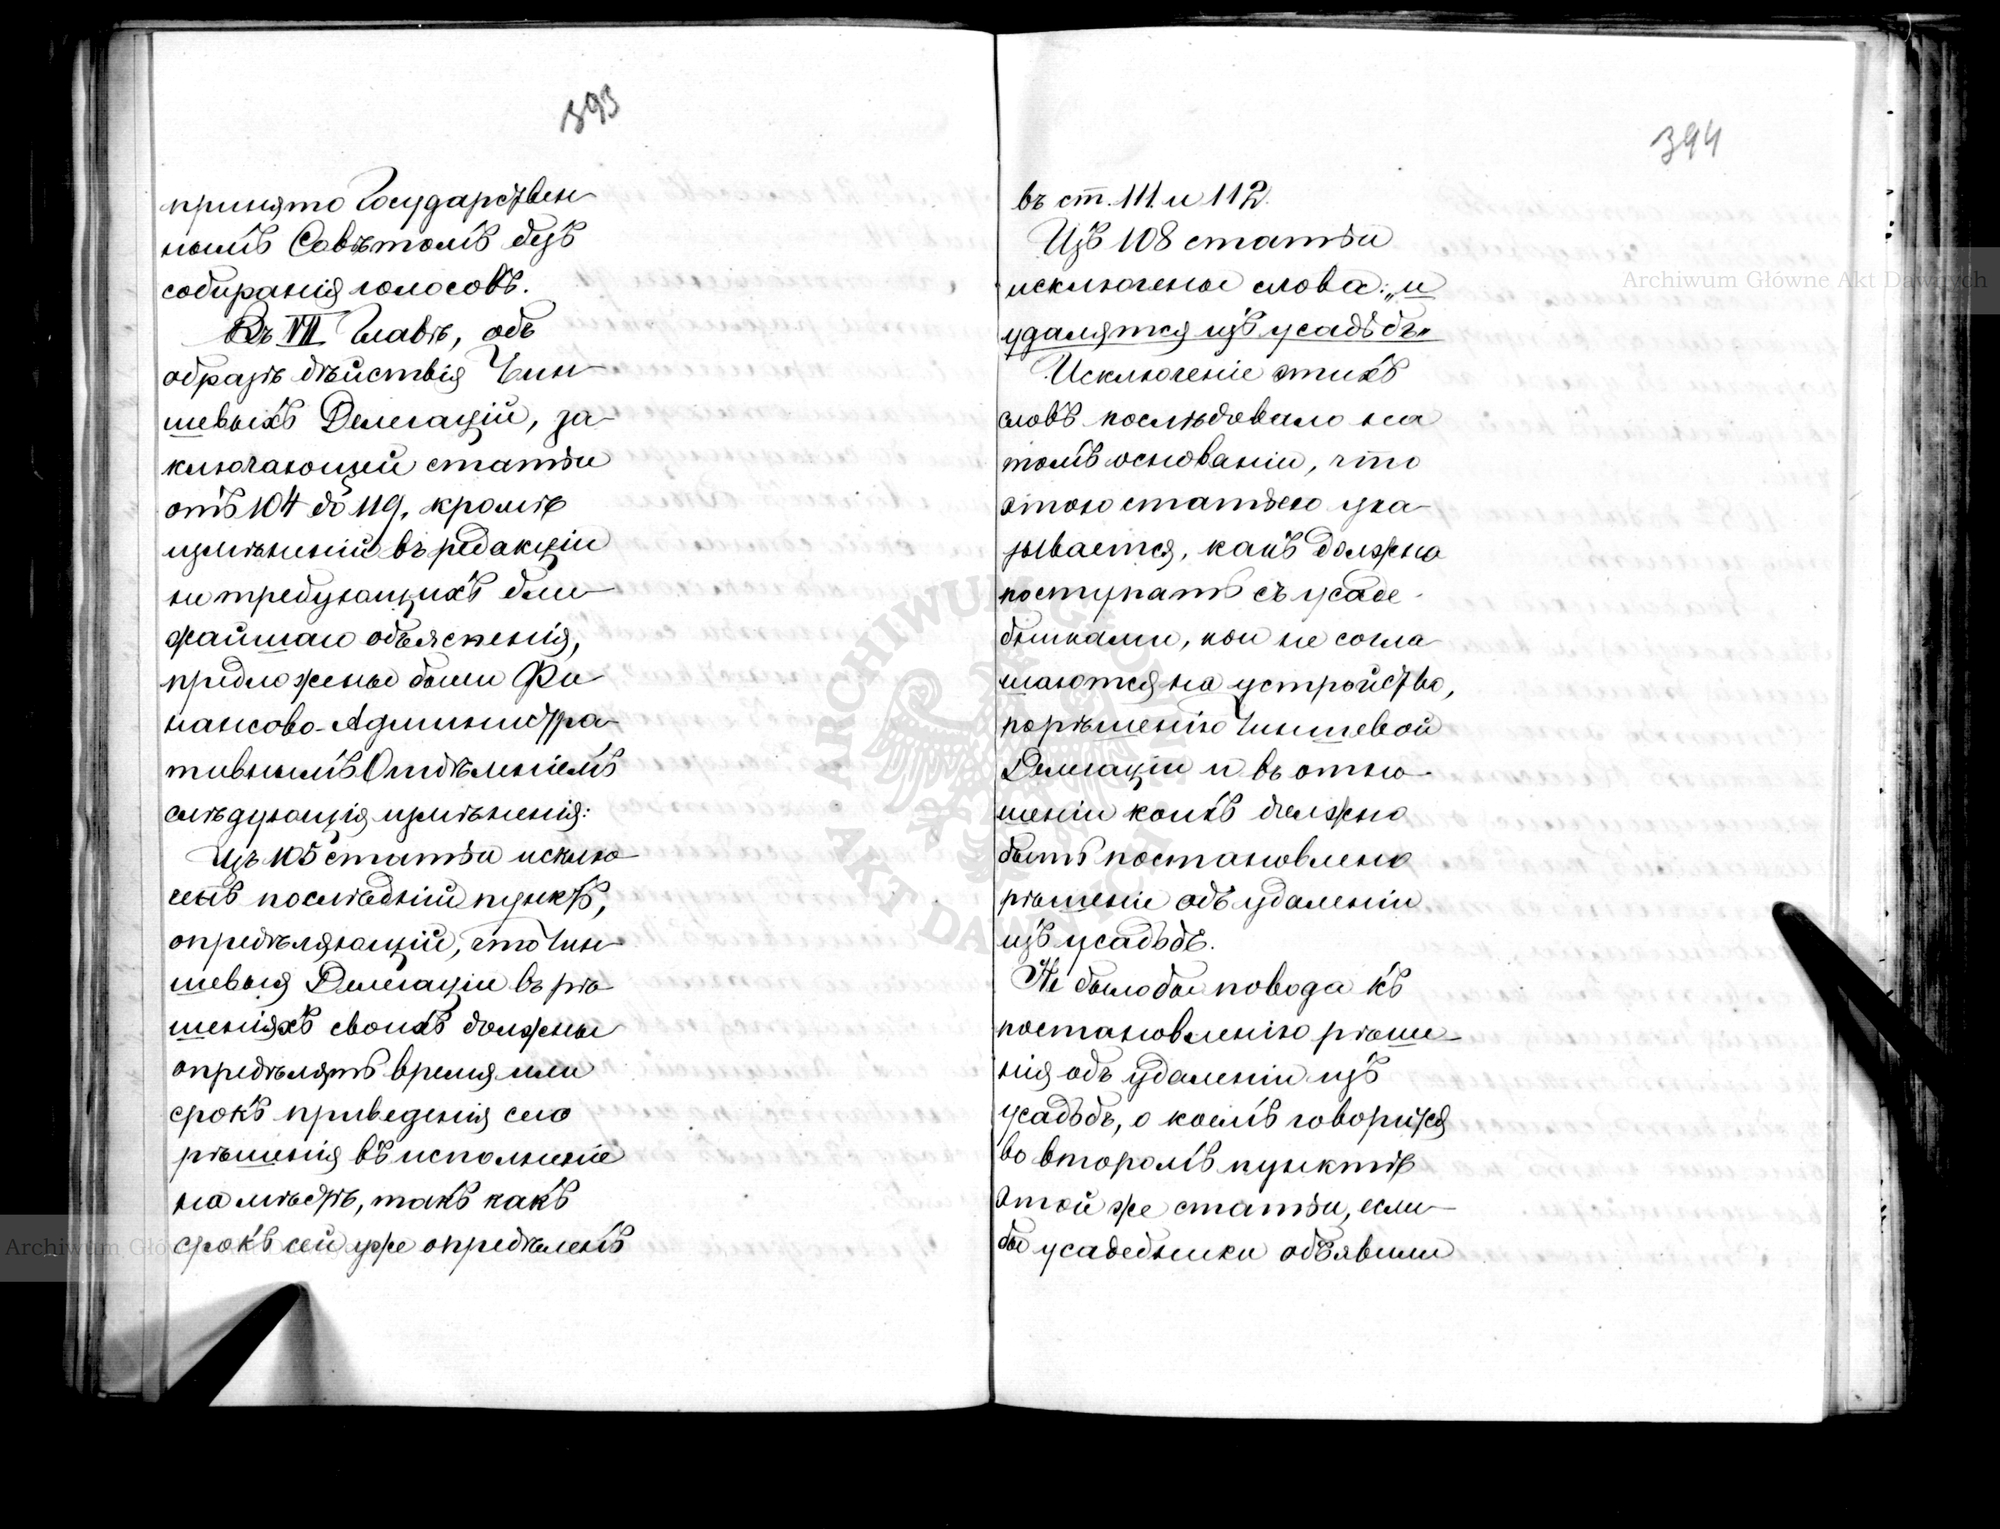 393
принято Государствен-
нымъ Совѣтомъ безъ
собиранія голосовъ.
Въ VII Главѣ, объ
образѣ дѣйствія Чин-
шевыхъ Делегацій, за-
ключающей статьи
отъ 104 до 119, кромѣ
измѣненій въ редакціи
не требующихъ бли-
жайшаго объясненія,
предложены были Фи-
нансово-Администра-
тивнымъ Отдѣленіемъ
слѣдующія измѣненія:
Изъ 105 статьи исклю-
ченъ послѣдній пунктъ,
опредѣляющій, что Чин-
шевыя Делегаціи въ рѣ-
шеніяхъ своихъ должны
опредѣлять время или
срокъ приведенія сего
рѣшенія въ исполненіе
на мѣстѣ, такъ какъ
срокъ сей уже опредѣленъ
394
въ ст. 111 и 112.
Изъ 108 статьи
исключены слова: „и
удаляются изъ усадьбъ"
Исключеніе этихъ
словъ послѣдовало на
томъ основаніи, что
этою статьею ука-
зывается, какъ должно
поступать съ усаде-
бниками, кои не согла-
шаются на устройство,
по рѣшенію Чиншевой
Делегаціи и въ отно-
шеніи коихъ должно
быть постановлено
рѣшеніе объ удаленіи
изъ усадьбъ.
Не было бы повода къ
постановленію рѣше-
нія объ удаленіи изъ
усадьбъ, о коемъ говорится
во второмъ пунктѣ
этой же статьи, если
бы усадебники объявили
Archiwum Główne Akt Dawnych
ARCHIWUM GŁÓWNE AKT DAWNYCH
Archiwum Główne Akt Dawnych